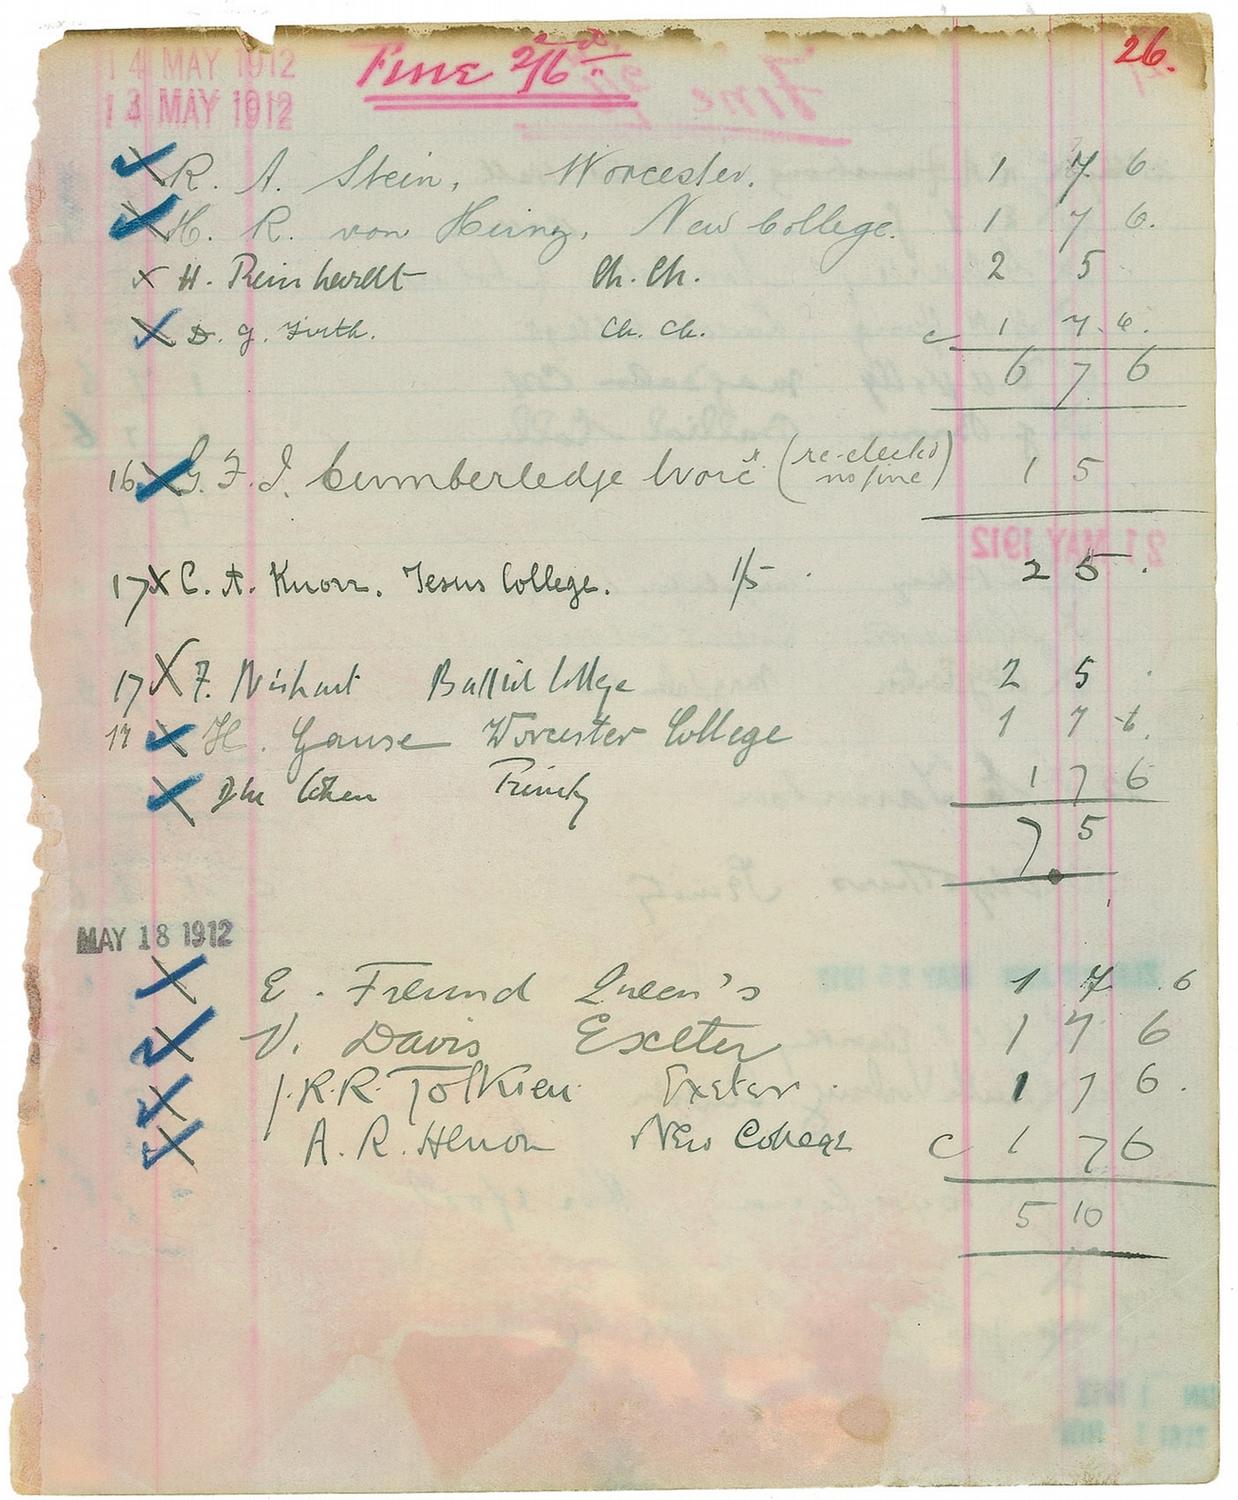 26.
14 MAY 1912
Fine 2/6d
13 MAY 1912
R. A. Stein, Worcester. 1 7 6.
H. R. von New College. 1 7 6.
H. Reinhardt Ch. Ch. 2 5
D. G. Firth. Ch. Ch. c 1 7. 6.
6 7 6
16 G. F. J. Cumberledge Worcr. (re-elected no fine) 1 5
21 MAY 1912
17 C. A. Knorr. Jesus College. 1/5 2 5 .
17 F. Balliol College 2 5 .
17 H. Gause Worcester College 1 7 6.
Cohen Trinity 1 7 6
7 5
MAY 18 1912
E. Freund Queen's 1 7 6
V. Davis Exeter 1 7 6
J.R.R. Tolkien Exeter. 1 7 6.
A. R. New College c 1 7 6
5 10